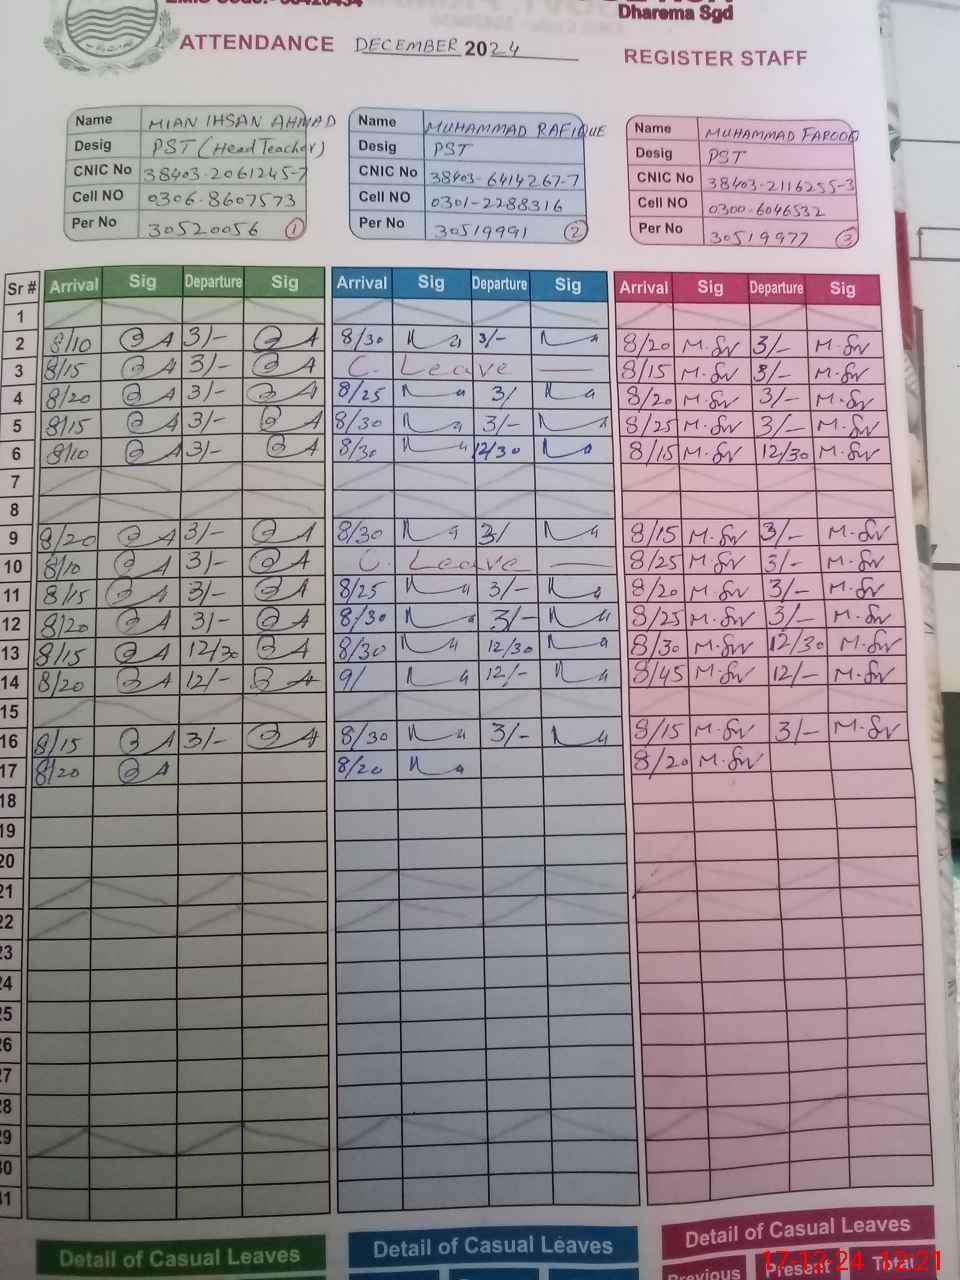 Dharema Sgd
ATTENDANCE DECEMBER 2024 REGISTER STAFF
Name MIAN IHSAN AHMAD
Desig PST (Head Teacher)
CNIC No 38403-2061245-7
Cell NO 0306-8607573
Per No 30520056 1
Name MUHAMMAD RAFIQUE
Desig PST
CNIC No 38403-6414267-7
Cell NO 0301-2288316
Per No 30519991 2
Name MUHAMMAD FAROOQ
Desig PST
CNIC No 38403-2116255-3
Cell NO 0300-6046532
Per No 30519977 3
Sr # Arrival Sig Departure Sig Arrival Sig Departure Sig Arrival Sig Departure Sig
1
2 8/10 3/- 8/30 3/- 8/20 3/-
3 8/15 3/- C. Leave 8/15 3/-
4 8/20 3/- 8/25 3/ 8/20 3/-
5 8/15 3/- 8/30 3/- 8/25 3/-
6 8/10 3/- 8/30 12/30 8/15 12/30
7
8
9 8/20 3/- 8/30 3/ 8/15 3/-
10 8/10 3/- C. Leave 8/25 3/-
11 8/15 3/- 8/25 3/- 8/20 3/-
12 8/20 3/- 8/30 3/- 8/25 3/-
13 8/15 12/30 8/30 12/30 8/30 12/30
14 8/20 12/- 9/ 12/- 8/45 12/-
15
16 8/15 3/- 8/30 3/- 8/15 3/-
17 8/20 8/20 8/20
18
19
20
21
22
23
24
25
26
27
28
29
30
31
Detail of Casual Leaves Detail of Casual Leaves Detail of Casual Leaves
Previous Present Total
17-12-24 12:21